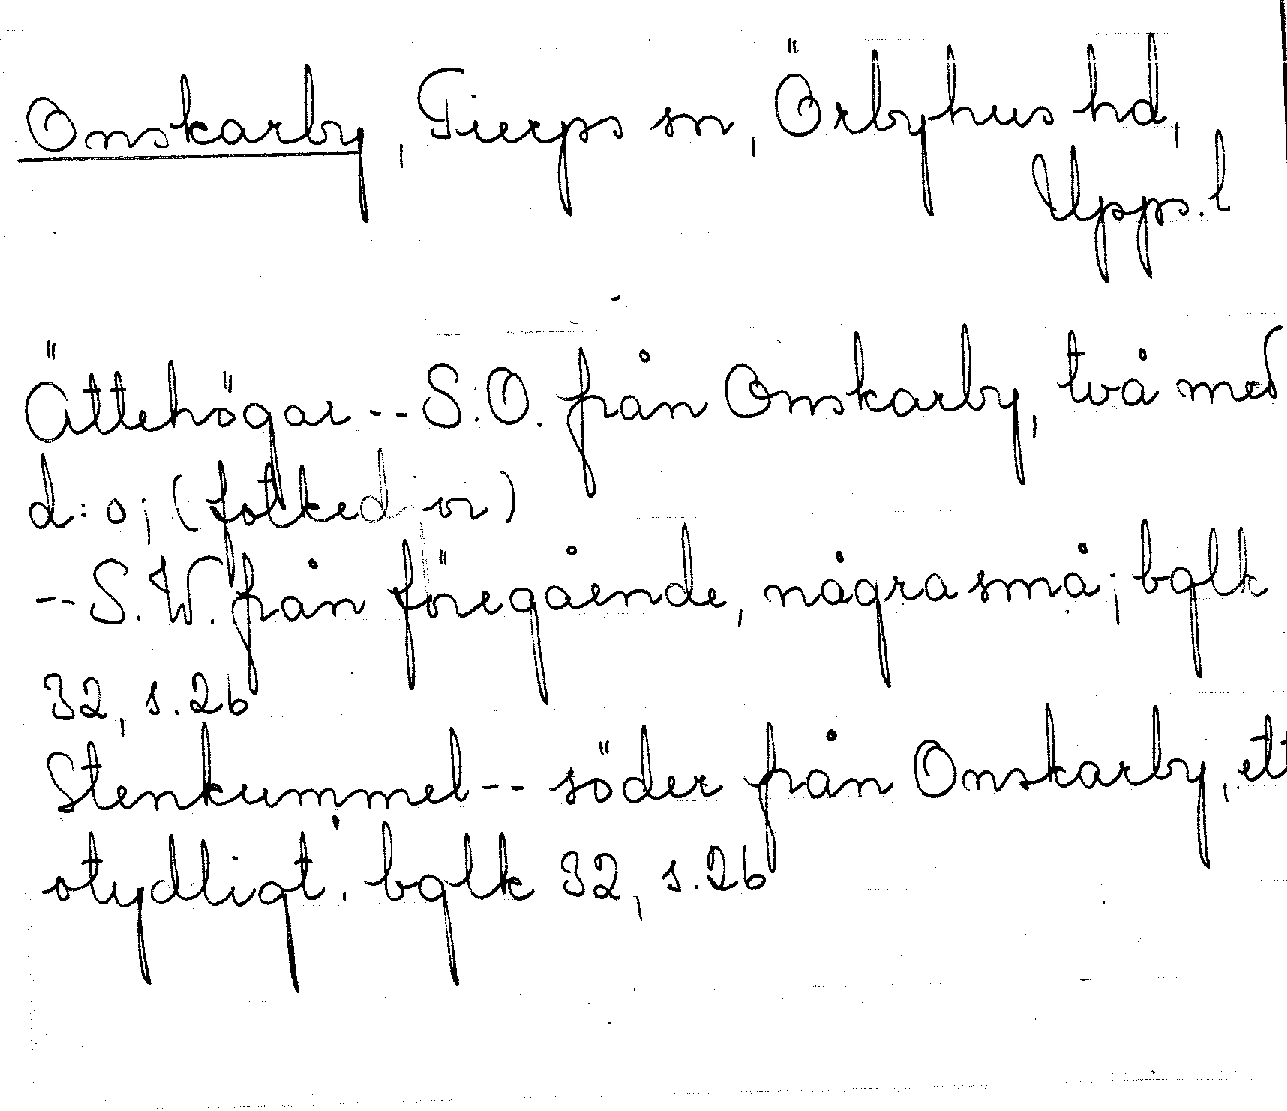 Onskarby, Tierps sn, Örbyhus hd,
Upps. l
Ättehögar -- S.O. från Onskarby, två med
d:o; (fotked or)
-- S.W. från föregående, några små; bglk
32, s. 26
Stenkummel -- söder från Onskarby, ett
otydligt. bglk 32, s. 26